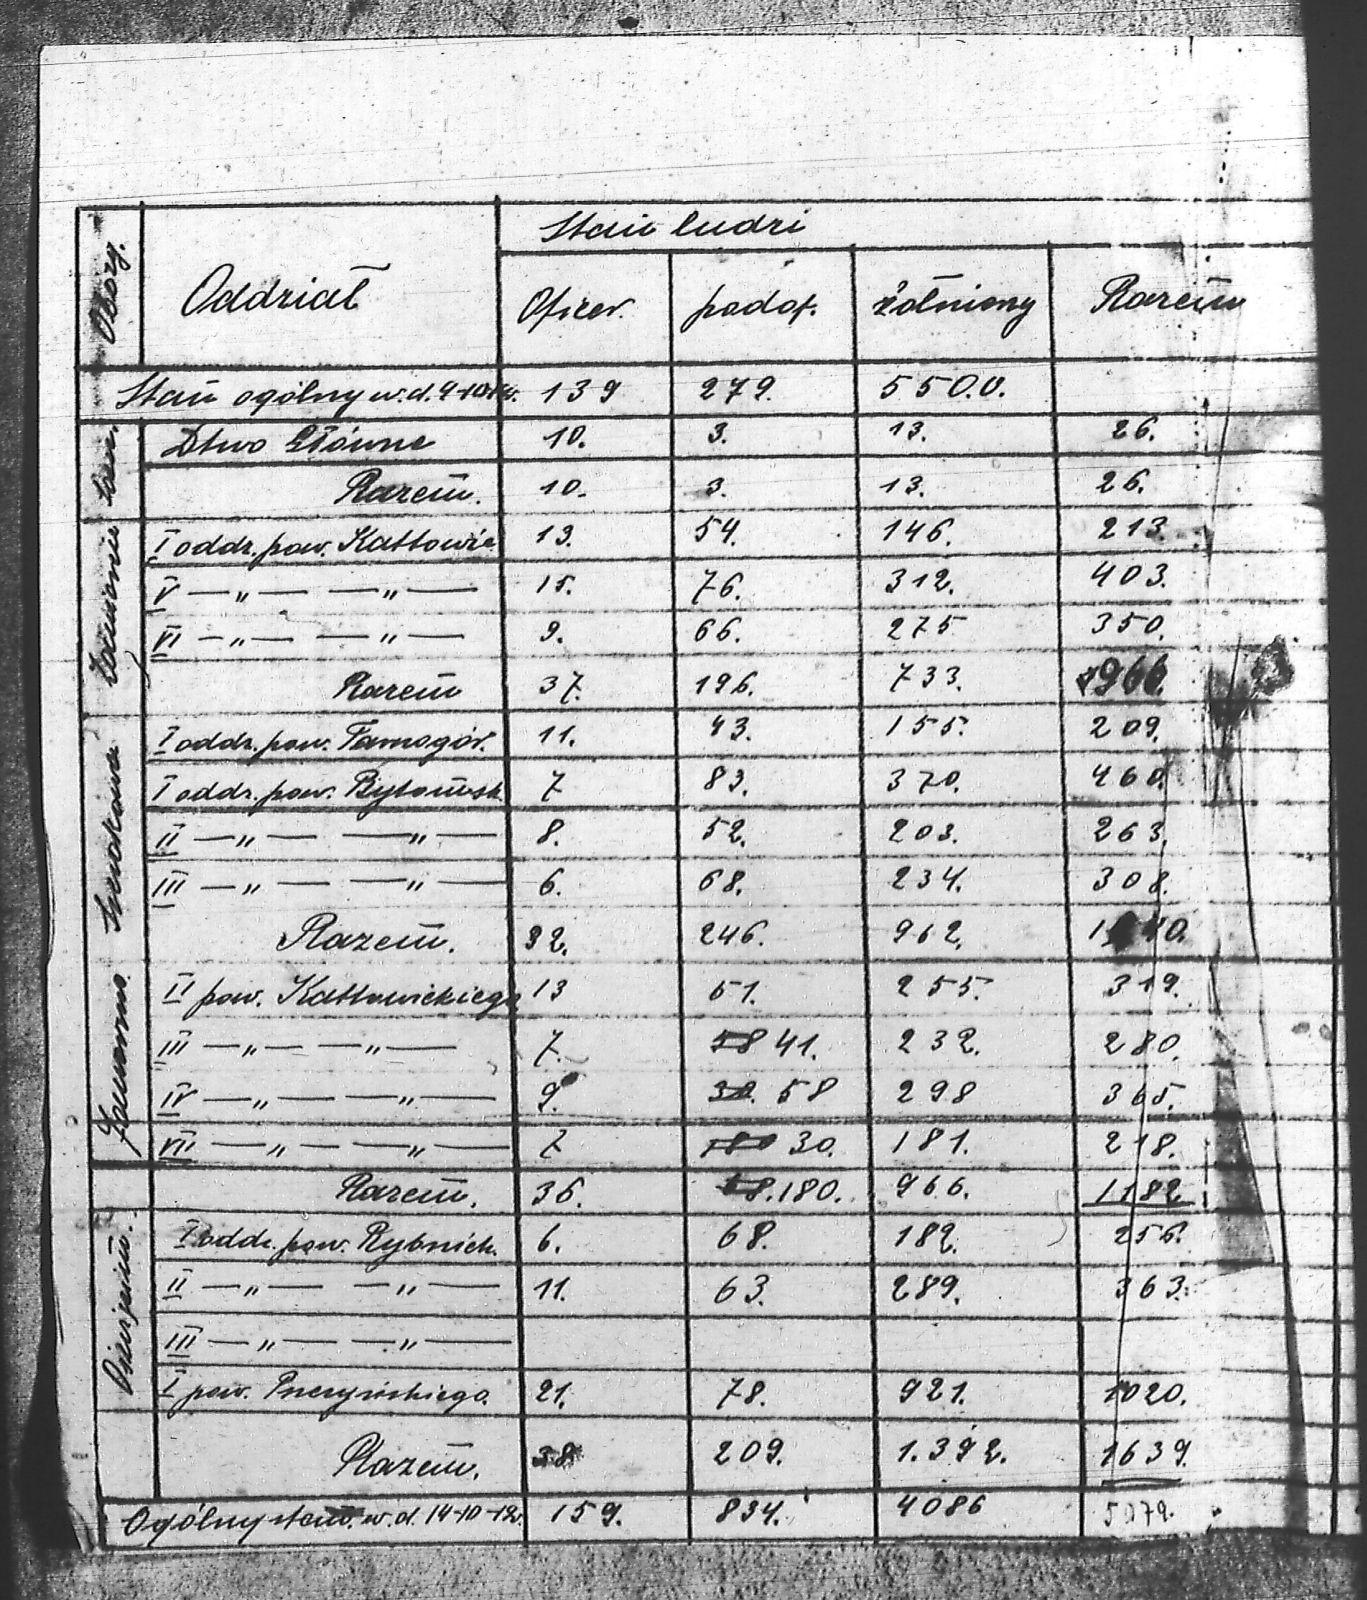 Obozy.
Oddział
Stan ludzi
Oficer.
podof.
żołnierzy
Razem
Stan ogólny w.d. 139 279. 5500.
Dtwo Główne 10. 3. 13. 26.
Razem. 10. 3. 13. 26.
I oddz. pow. Kattowic. 13. 54. 146. 213.
V —„— —„— 15. 76. 312. 403.
VI —„— —„— 9. 66. 275 350.
Razem 37. 196. 733. 966.
I oddz. pow. Tarnogór. 11. 43. 155. 209.
I oddz. pow. Bytomsk. 7 83. 370. 460.
II —„— —„— 8. 52. 203. 263.
III —„— —„— 6. 68. 234. 308.
Razem. 32. 246. 962.
II pow. Kattowickiego 13 51. 255. 319.
III —„— —„— 7. 58 41. 232. 280.
IV —„— —„— 9. 30. 58 298 365.
VII —„— —„— 7 180 30. 181. 218.
Razem. 36. 180. 966. 1182
I oddz. pow. Rybnick. 6. 68. 182. 256.
II —„— —„— 11. 63. 289. 363.
III —„— —„—
I pow. Pszczyńskiego. 21. 78. 921. 1020.
Razem. 38 209. 1.392. 1639.
Ogólny stan. w.d. 14-10-19r. 159. 834. 4086 5079.